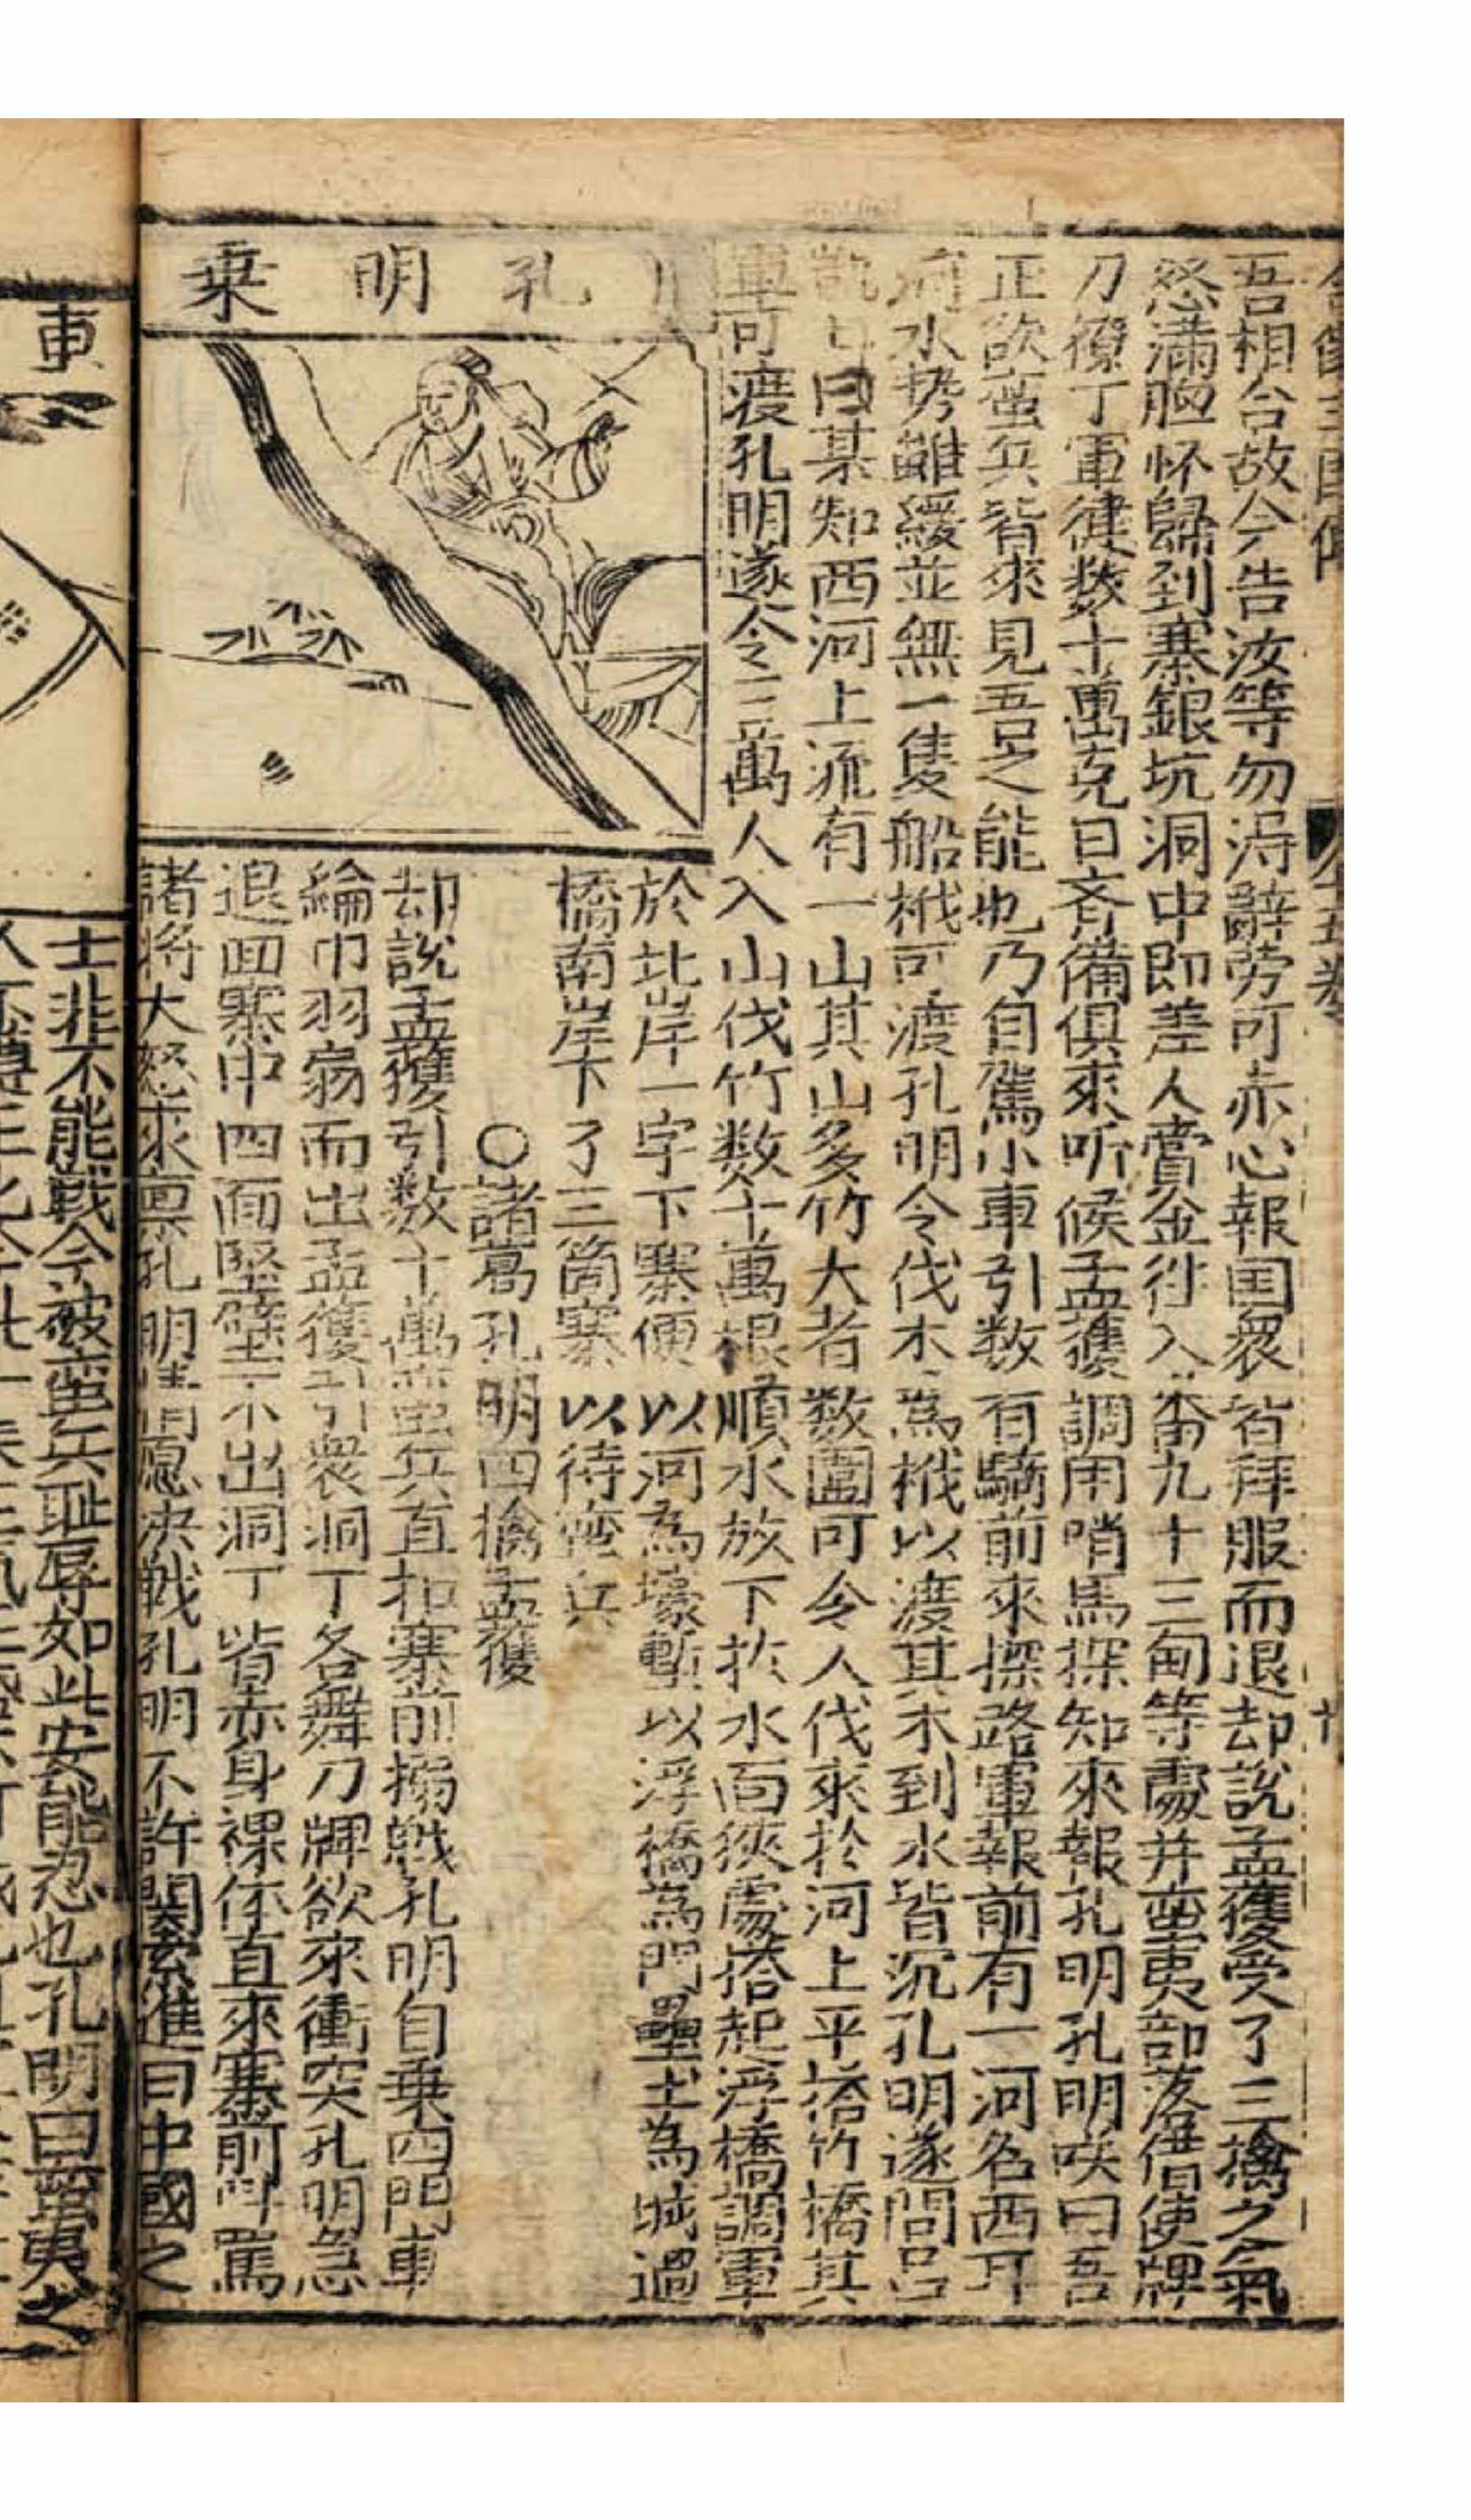 吾相合故今告汝等勿淂辭劳可赤心報囯衆皆拜服而退却說孟獲受了三擒之氣
怒滿胸怀歸到寨銀坑洞中即差人賫金往八番九十三甸等處并蛮夷部落借使牌
刀獠丁軍健数十萬克日齐俻俱來听候孟獲調用哨馬探知來報孔明孔明咲曰吾
正欲蛮兵皆來見吾之能也乃自駕小車引数百騎前來探路軍報前有一河名西耳
河水势雖緩並無一隻船栰可渡孔明令伐木爲栰以渡其木到水皆沉孔明遂問吕
凱凱曰某知西河上流有一山其山多竹大者数圍可令人伐來扵河上平搭竹橋其
軍可渡孔明遂令三萬人入山伐竹数十萬根順水放下扵水面狹處搭起浮橋調軍
於北岸一字下寨便以河為壕塹以浮橋爲門壘土為城過
橋南岸下了三箇寨以待蛮兵
○諸葛孔明四擒孟獲
却說孟獲引数十萬蛮兵直扣寨前搦戰孔明自乗四門車
綸巾羽扇而出孟獲引衆洞丁各舞刀牌欲來衝突孔明急
退回寨中四面堅壁不出洞丁皆赤身裸体直來寨前呌罵
諸将大怒來禀孔明情愿决戦孔明不許関索進曰中國之
孔明乗
車
士非不能戰今被蛮兵耻辱如此安能忍也孔明曰蛮夷之